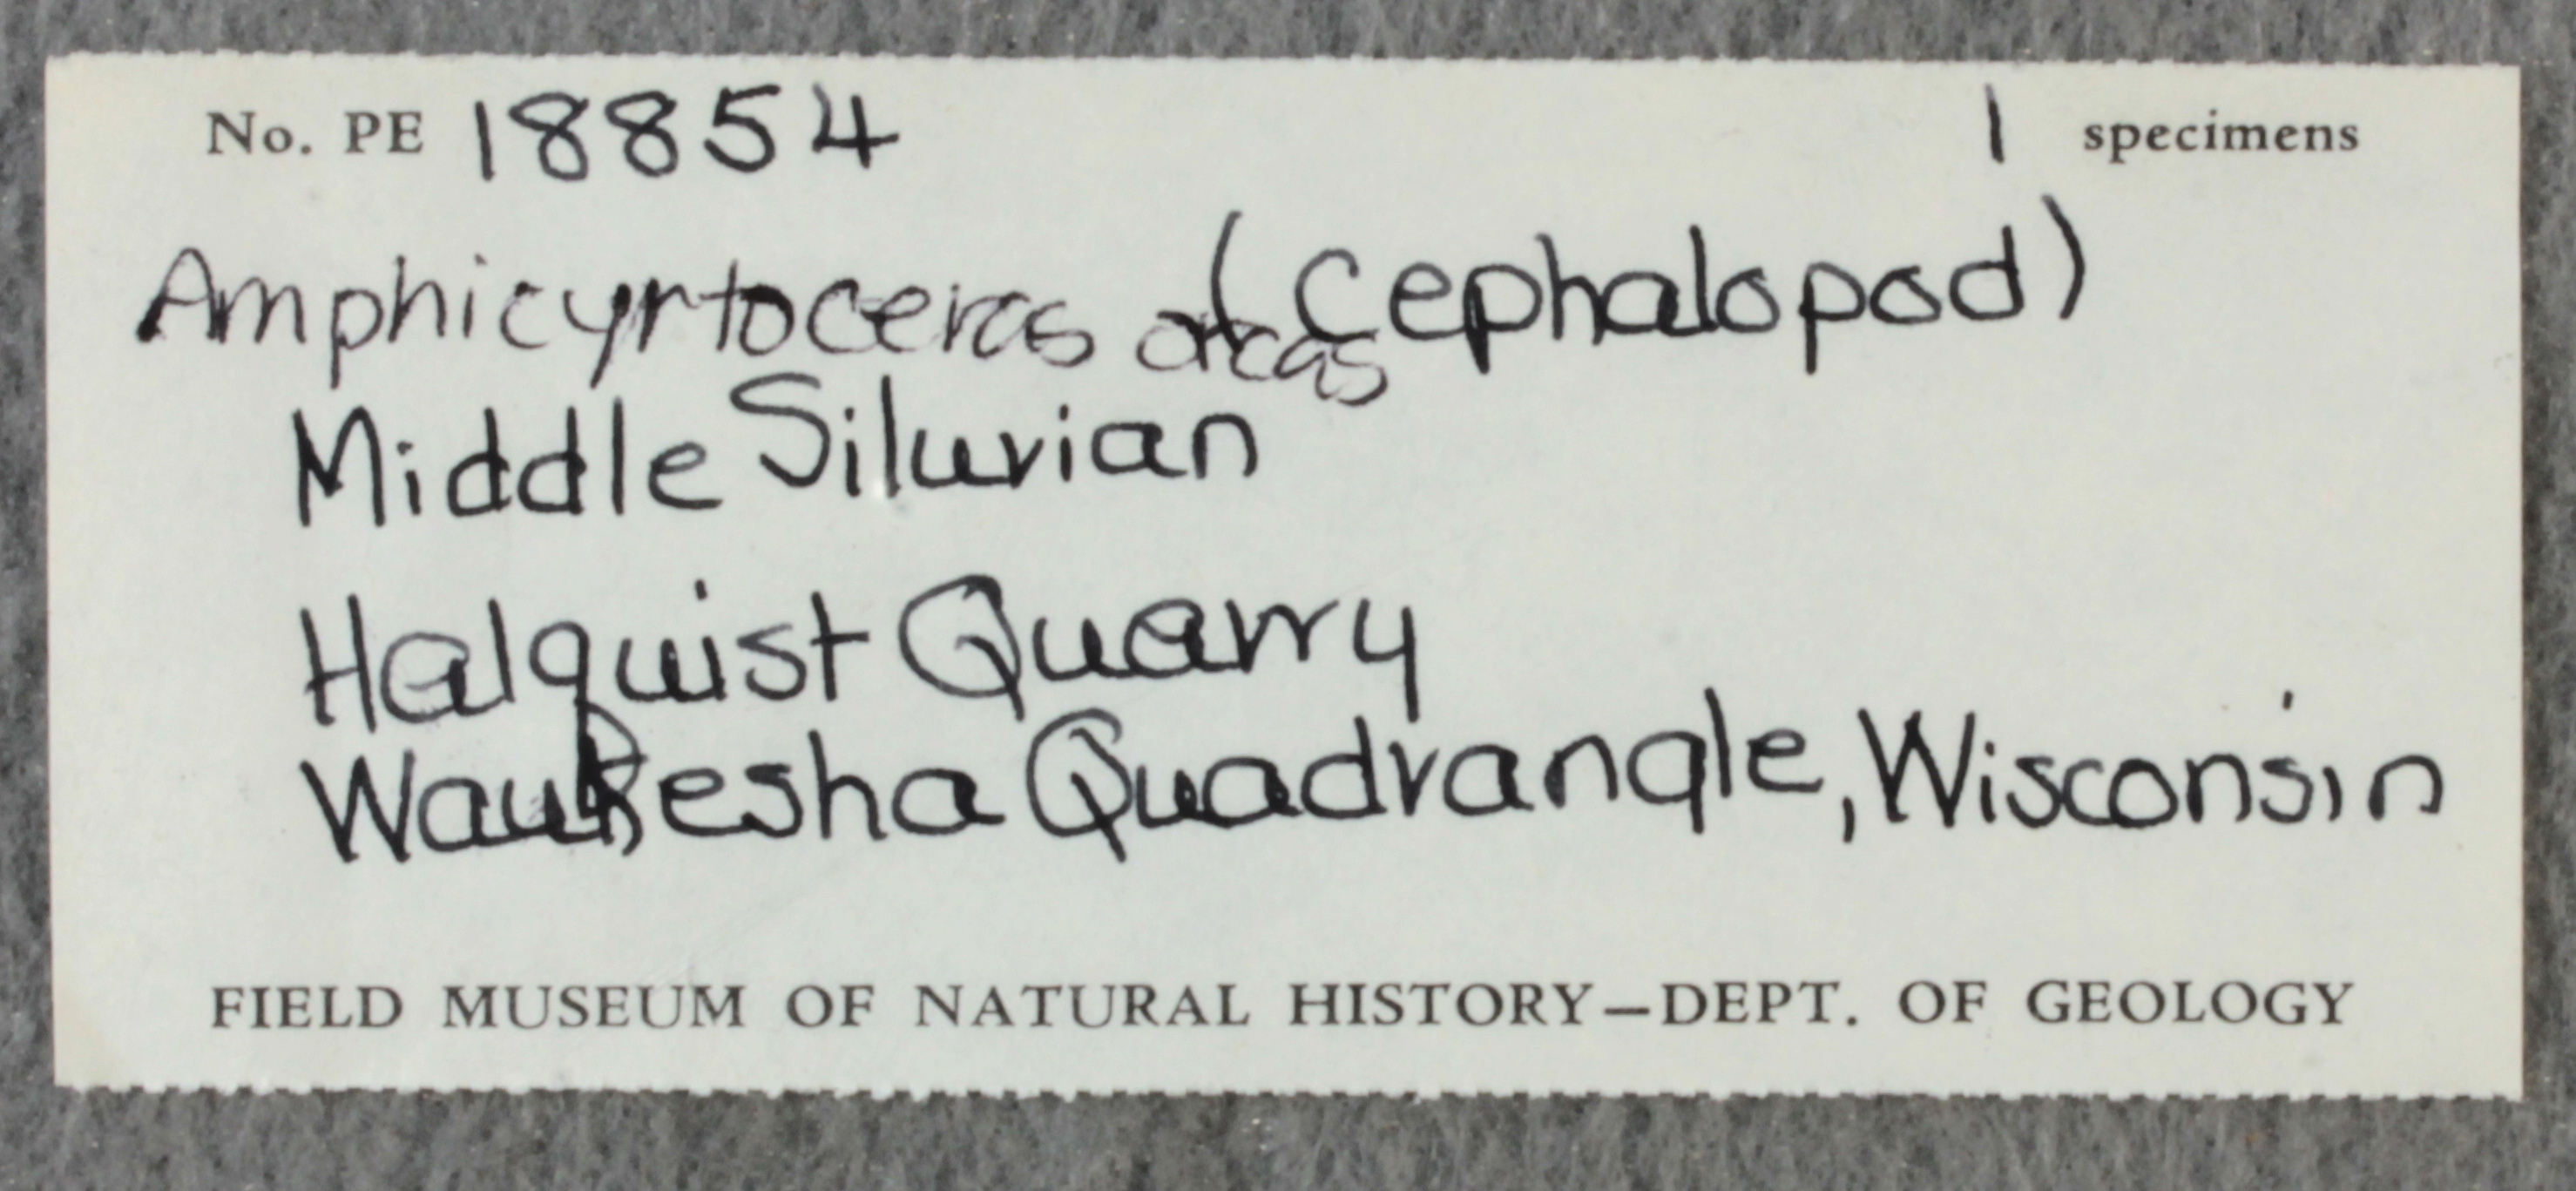 No. PE 18854 1 specimens
Amphicyrtoceras orcas (Cephalopod)
Middle Silurian
Halquist Quarry
Waukesha Quadrangle, Wisconsin
FIELD MUSEUM OF NATURAL HISTORY—DEPT. OF GEOLOGY